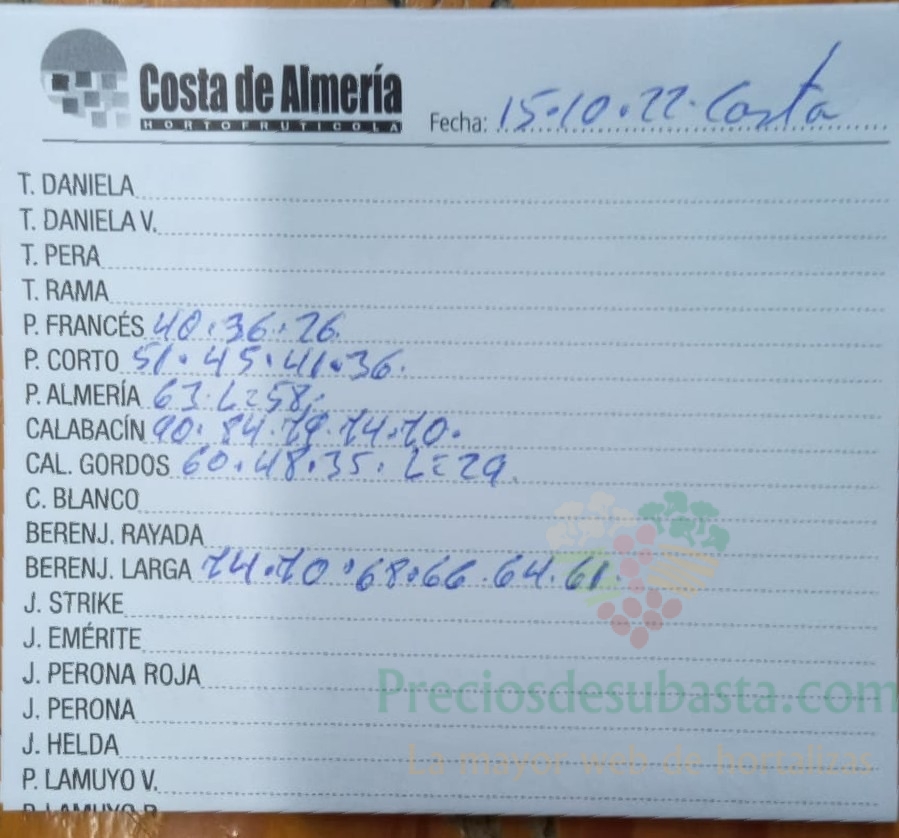 Costa de Almería
HORTOFRUTICOLA
Fecha: 15.10.22. Costa
T. DANIELA
T. DANIELA V.
T. PERA
T. RAMA
P. FRANCÉS 40.36.26
P. CORTO 51.45.41.36.
P. ALMERÍA 63.L=58.
CALABACÍN 90.84.79.74.70.
CAL. GORDOS 60.48.35.L=29.
C. BLANCO
BERENJ. RAYADA
BERENJ. LARGA 74.70.68.66.64.61.
J. STRIKE
J. EMÉRITE
J. PERONA ROJA
J. PERONA
Preciosdesubasta.com
J. HELDA
La mayor web de hortalizas
P. LAMUYO V.
P. LAMUYO R.